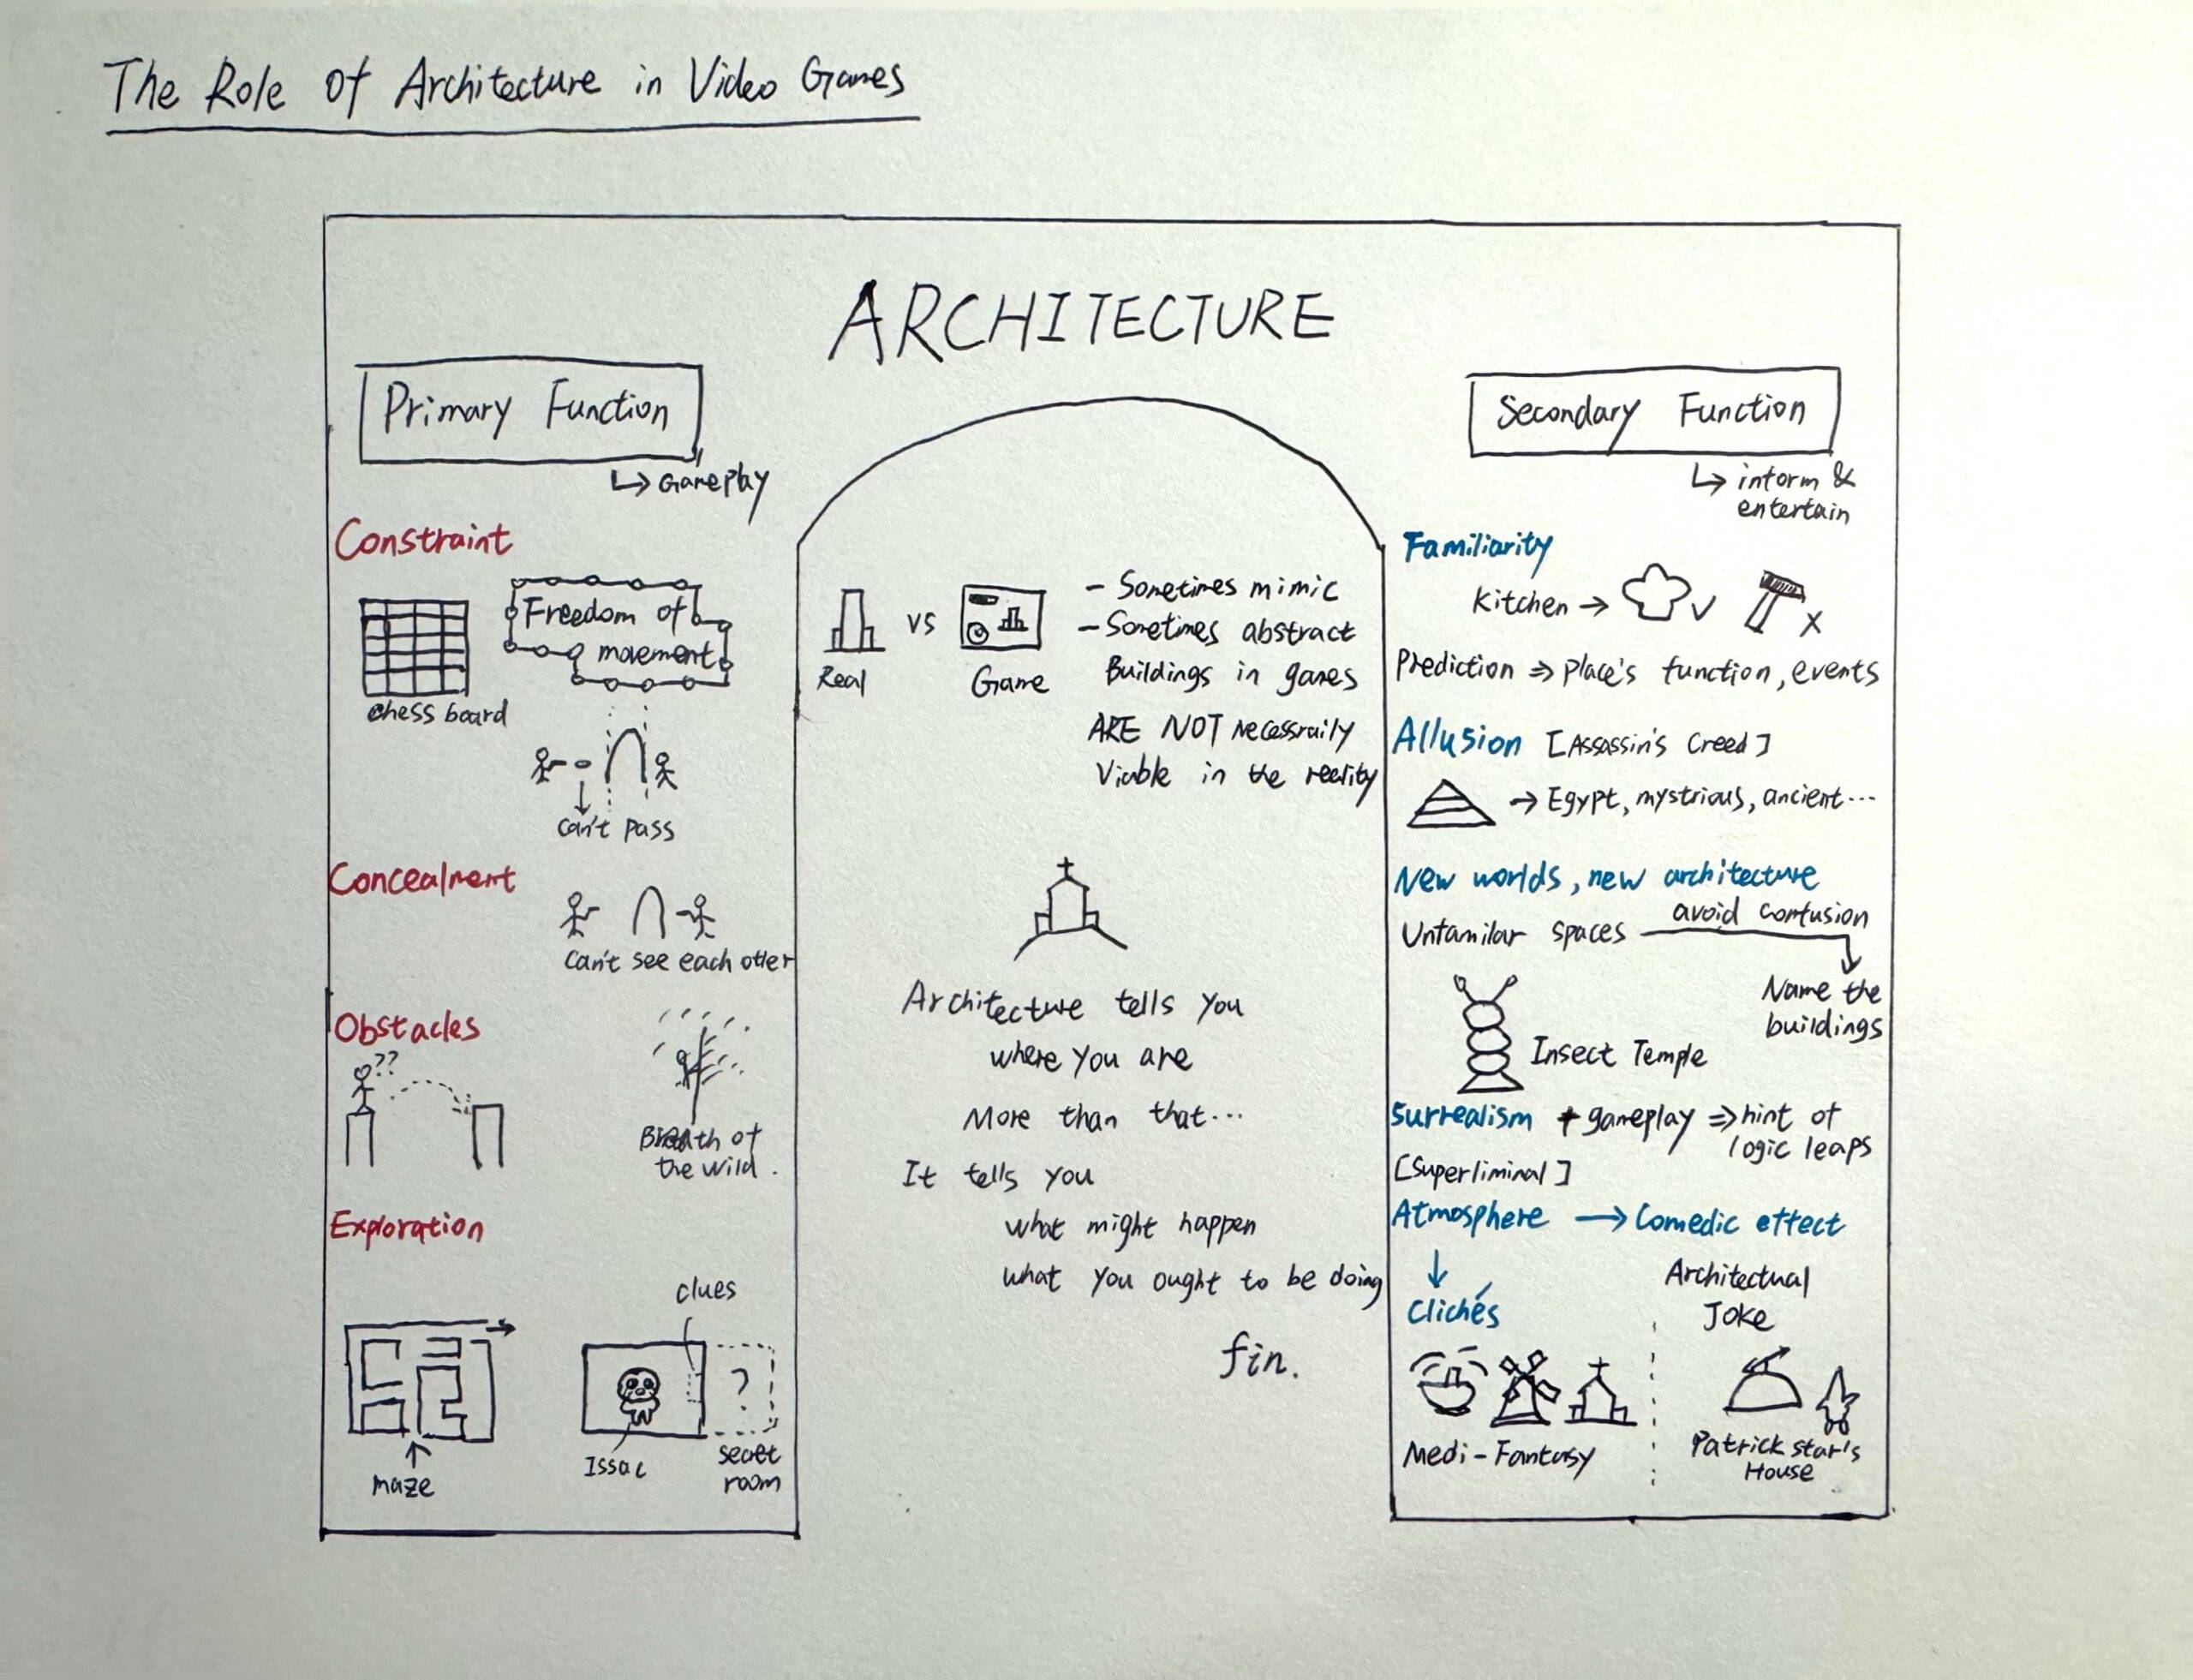 The Role of Architecture in Video Games
ARCHITECTURE
Primary Function
↳ Gameplay
Constraint
Freedom of
movement
chess board
can't pass
Concealment
can't see each otler
Obstacles
??
Breath of
the wild.
Exploration
clues
?
Issac
secret
room
maze
Real
vs
Game
- Sometimes mimic
- Sometimes abstract
Buildings in games
ARE NOT necessraily
Viable in the reality
Architecture tells you
where you are
More than that...
It tells you
what might happen
what you ought to be doing
fin.
Secondary Function
↳ inform &
entertain
Familiarity
Kitchen → ✓ x
Prediction ⇒ place's function, events
Allusion [Assassin's Creed]
→ Egypt, mystrious, ancient...
New worlds, new architecture
Unfamilar spaces avoid confusion
Name the
buildings
Insect Temple
Surrealism + gameplay ⇒ hint of
logic leaps
[Superliminal]
Atmosphere → Comedic effect
↓
Clichés
Architectual
Joke
Medi-Fantasy
Patrick star's
House